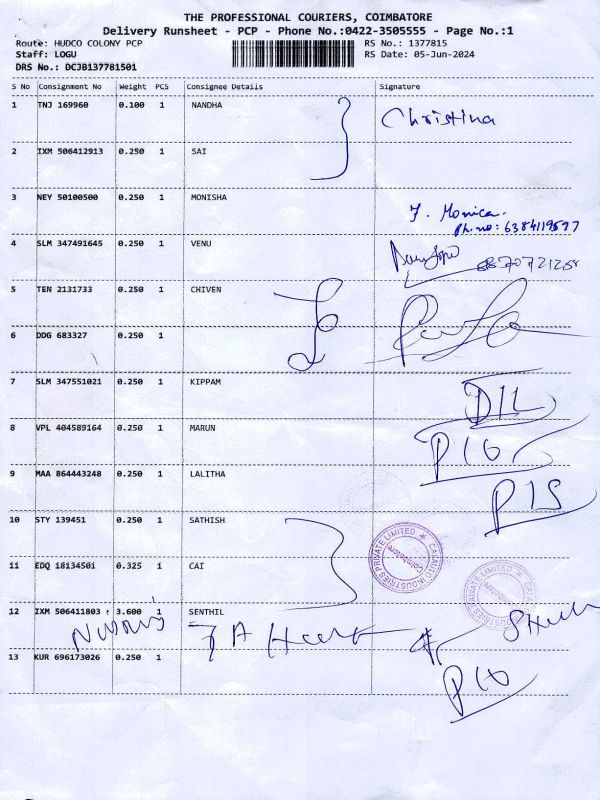 THE PROFESSIONAL COURIERS, COIMBATORE
Delivery Runsheet - PCP - Phone No.:0422-3505555 - Page No.:1
Route: HUDCO COLONY PCP RS No.: 1377815
Staff: LOGU RS Date: 05-Jun-2024
DRS No.: DCJB137781501
S No Consignment No Weight PCS Consignee Details Signature
1 TNJ 169960 0.100 1 NANDHA
Christina
2 IXM 506412913 0.250 1 SAI
3 NEY 50100500 0.250 1 MONISHA
F. Monica.
Ph.no: 6384119597
4 SLM 347491645 0.250 1 VENU
5 TEN 2131733 0.250 1 CHIVEN
6 DDG 683327 0.250 1
7 SLM 347551021 0.250 1 KIPPAM
DIL
8 VPL 404589164 0.250 1 MARUN
9 MAA 864443248 0.250 1 LALITHA
PIS
10 STY 139451 0.250 1 SATHISH
11 EDQ 18134501 0.325 1 CAI
INDUSTRIES PRIVATE LIMITED
Coimbatore
12 IXM 506411803 3.600 1 SENTHIL
13 KUR 696173026 0.250 1